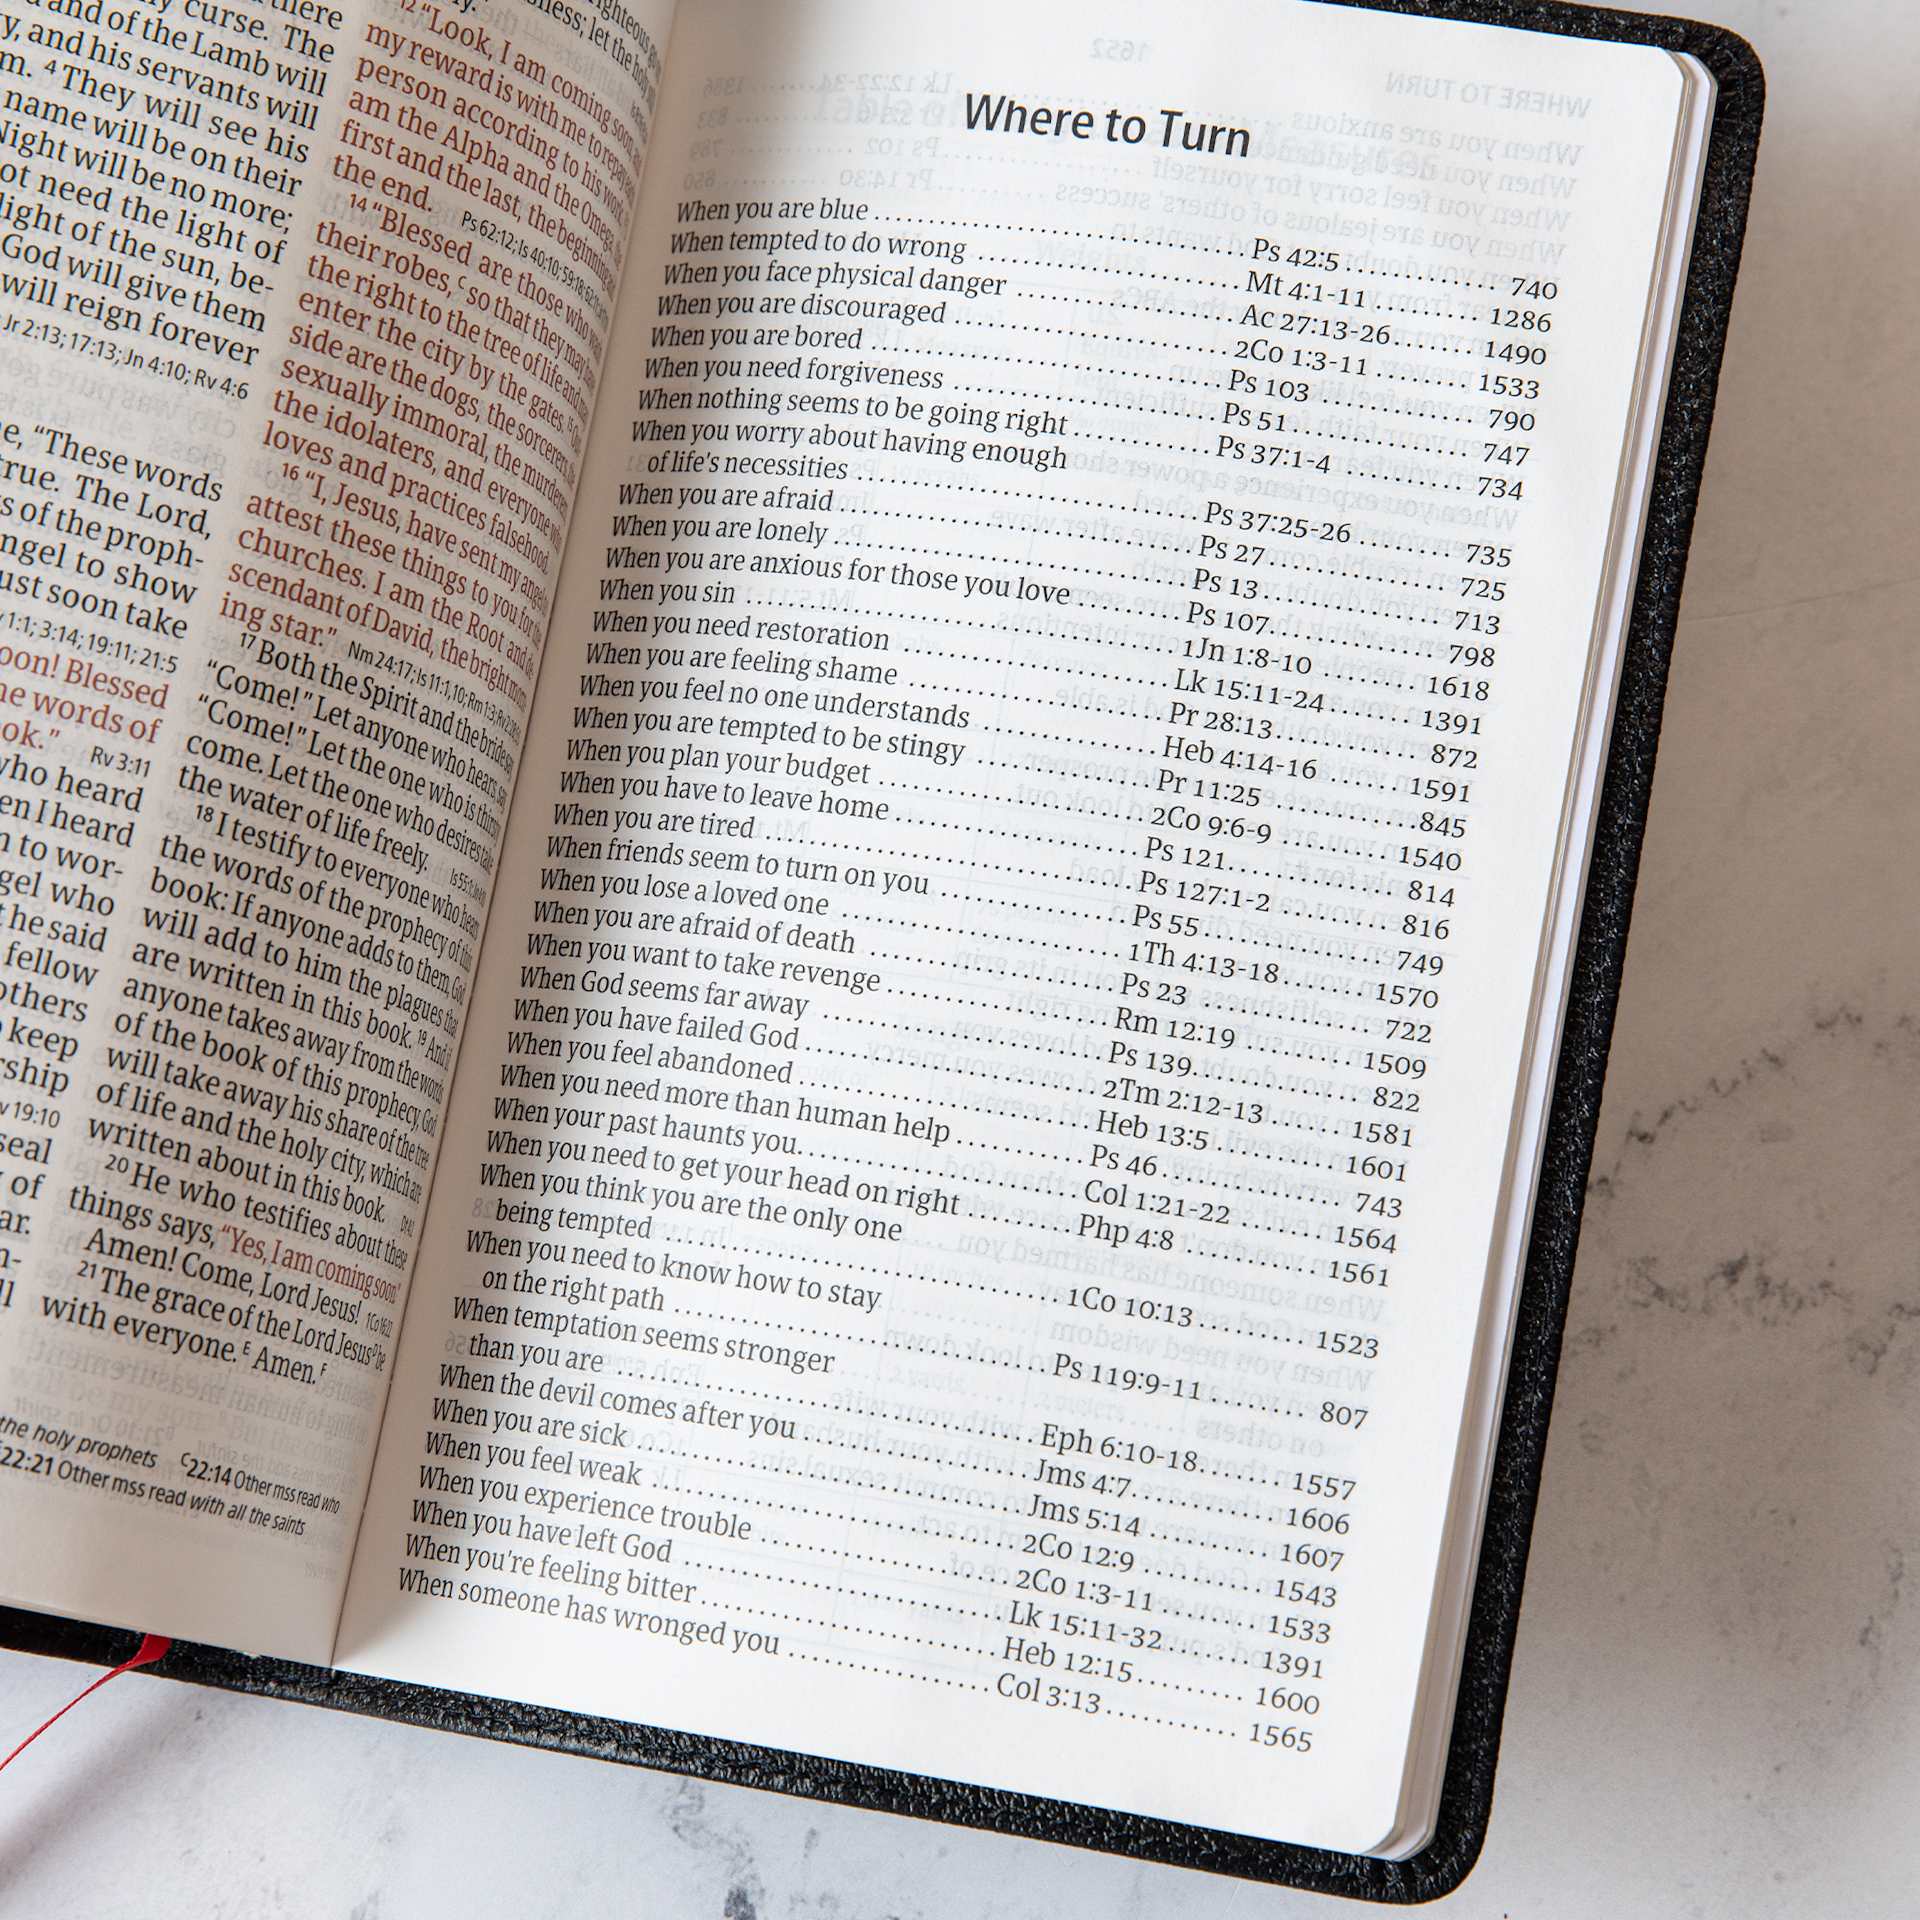 there
and of the Lamb will
y, and his servants will
m. 4 They will see his
name will be on their
Night will be no more;
ot need the light of
light of the sun, be-
God will give them
will reign forever
Jr 2:13; 17:13; Jn 4:10; Rv 4:6
e, “These words
true. The Lord,
s of the proph-
ngel to show
ust soon take
1:1; 3:14; 19:11; 21:5
oon! Blessed
he words of
ok.” Rv 3:11
who heard
en I heard
n to wor-
gel who
t he said
fellow
others
keep
rship
v 19:10
seal
y of
ar.
12 “Look, I am coming soon, and
my reward is with me to repay each
person according to his work. 13 I
am the Alpha and the Omega, the
first and the last, the beginning and
the end. Ps 62:12; Is 40:10; 59:18; 62:11
14 “Blessed are those who wash
their robes, C so that they may have
the right to the tree of life and may
enter the city by the gates. 15 Out-
side are the dogs, the sorcerers, the
sexually immoral, the murderers,
the idolaters, and everyone who
loves and practices falsehood.
16 “I, Jesus, have sent my angel to
attest these things to you for the
churches. I am the Root and de-
scendant of David, the bright morn-
ing star.” Nm 24:17; Is 11:1,10; Rm 1:3; Rv 2:28
17 Both the Spirit and the bride say,
“Come!” Let anyone who hears, say,
“Come!” Let the one who is thirsty
come. Let the one who desires take
the water of life freely. Is 55:1
18 I testify to everyone who hears
the words of the prophecy of this
book: If anyone adds to them, God
will add to him the plagues that
are written in this book. 19 And if
anyone takes away from the words
of the book of this prophecy, God
will take away his share of the tree
of life and the holy city, which are
written about in this book.
20 He who testifies about these
things says, “Yes, I am coming soon.”
Amen! Come, Lord Jesus! 1Co 16:22
21 The grace of the Lord Jesus D be
with everyone. E Amen. F
the holy prophets C 22:14 Other mss read who
22:21 Other mss read with all the saints
Where to Turn
When you are blue ........ Ps 42:5 ........ 740
When tempted to do wrong ........ Mt 4:1-11 ........ 1286
When you face physical danger ........ Ac 27:13-26 ........ 1490
When you are discouraged ........ 2Co 1:3-11 ........ 1533
When you are bored ........ Ps 103 ........ 790
When you need forgiveness ........ Ps 51 ........ 747
When nothing seems to be going right ........ Ps 37:1-4 ........ 734
When you worry about having enough
of life's necessities ........ Ps 37:25-26 ........ 735
When you are afraid ........ Ps 27 ........ 725
When you are lonely ........ Ps 13 ........ 713
When you are anxious for those you love ........ Ps 107 ........ 798
When you sin ........ 1Jn 1:8-10 ........ 1618
When you need restoration ........ Lk 15:11-24 ........ 1391
When you are feeling shame ........ Pr 28:13 ........ 872
When you feel no one understands ........ Heb 4:14-16 ........ 1591
When you are tempted to be stingy ........ Pr 11:25 ........ 845
When you plan your budget ........ 2Co 9:6-9 ........ 1540
When you have to leave home ........ Ps 121 ........ 814
When you are tired ........ Ps 127:1-2 ........ 816
When friends seem to turn on you ........ Ps 55 ........ 749
When you lose a loved one ........ 1Th 4:13-18 ........ 1570
When you are afraid of death ........ Ps 23 ........ 722
When you want to take revenge ........ Rm 12:19 ........ 1509
When God seems far away ........ Ps 139 ........ 822
When you have failed God ........ 2Tm 2:12-13 ........ 1581
When you feel abandoned ........ Heb 13:5 ........ 1601
When you need more than human help ........ Ps 46 ........ 743
When your past haunts you ........ Col 1:21-22 ........ 1564
When you need to get your head on right ........ Php 4:8 ........ 1561
When you think you are the only one
being tempted ........ 1Co 10:13 ........ 1523
When you need to know how to stay
on the right path ........ Ps 119:9-11 ........ 807
When temptation seems stronger
than you are ........ Eph 6:10-18 ........ 1557
When the devil comes after you ........ Jms 4:7 ........ 1606
When you are sick ........ Jms 5:14 ........ 1607
When you feel weak ........ 2Co 12:9 ........ 1543
When you experience trouble ........ 2Co 1:3-11 ........ 1533
When you have left God ........ Lk 15:11-32 ........ 1391
When you're feeling bitter ........ Heb 12:15 ........ 1600
When someone has wronged you ........ Col 3:13 ........ 1565